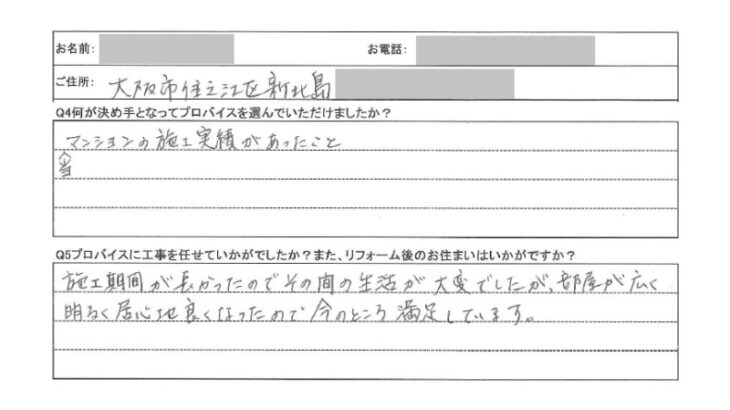 お名前:
お電話:
ご住所: 大阪市住之江区新北島
Q4何が決め手となってプロバイスを選んでいただけましたか?
マンションの施工実績があったこと
Q5プロバイスに工事を任せていかがでしたか?また、リフォーム後のお住まいはいかがですか?
施工期間が長かったのでその間の生活が大変でしたが、部屋が広く
明るく居心地良くなったので今のところ満足しています。